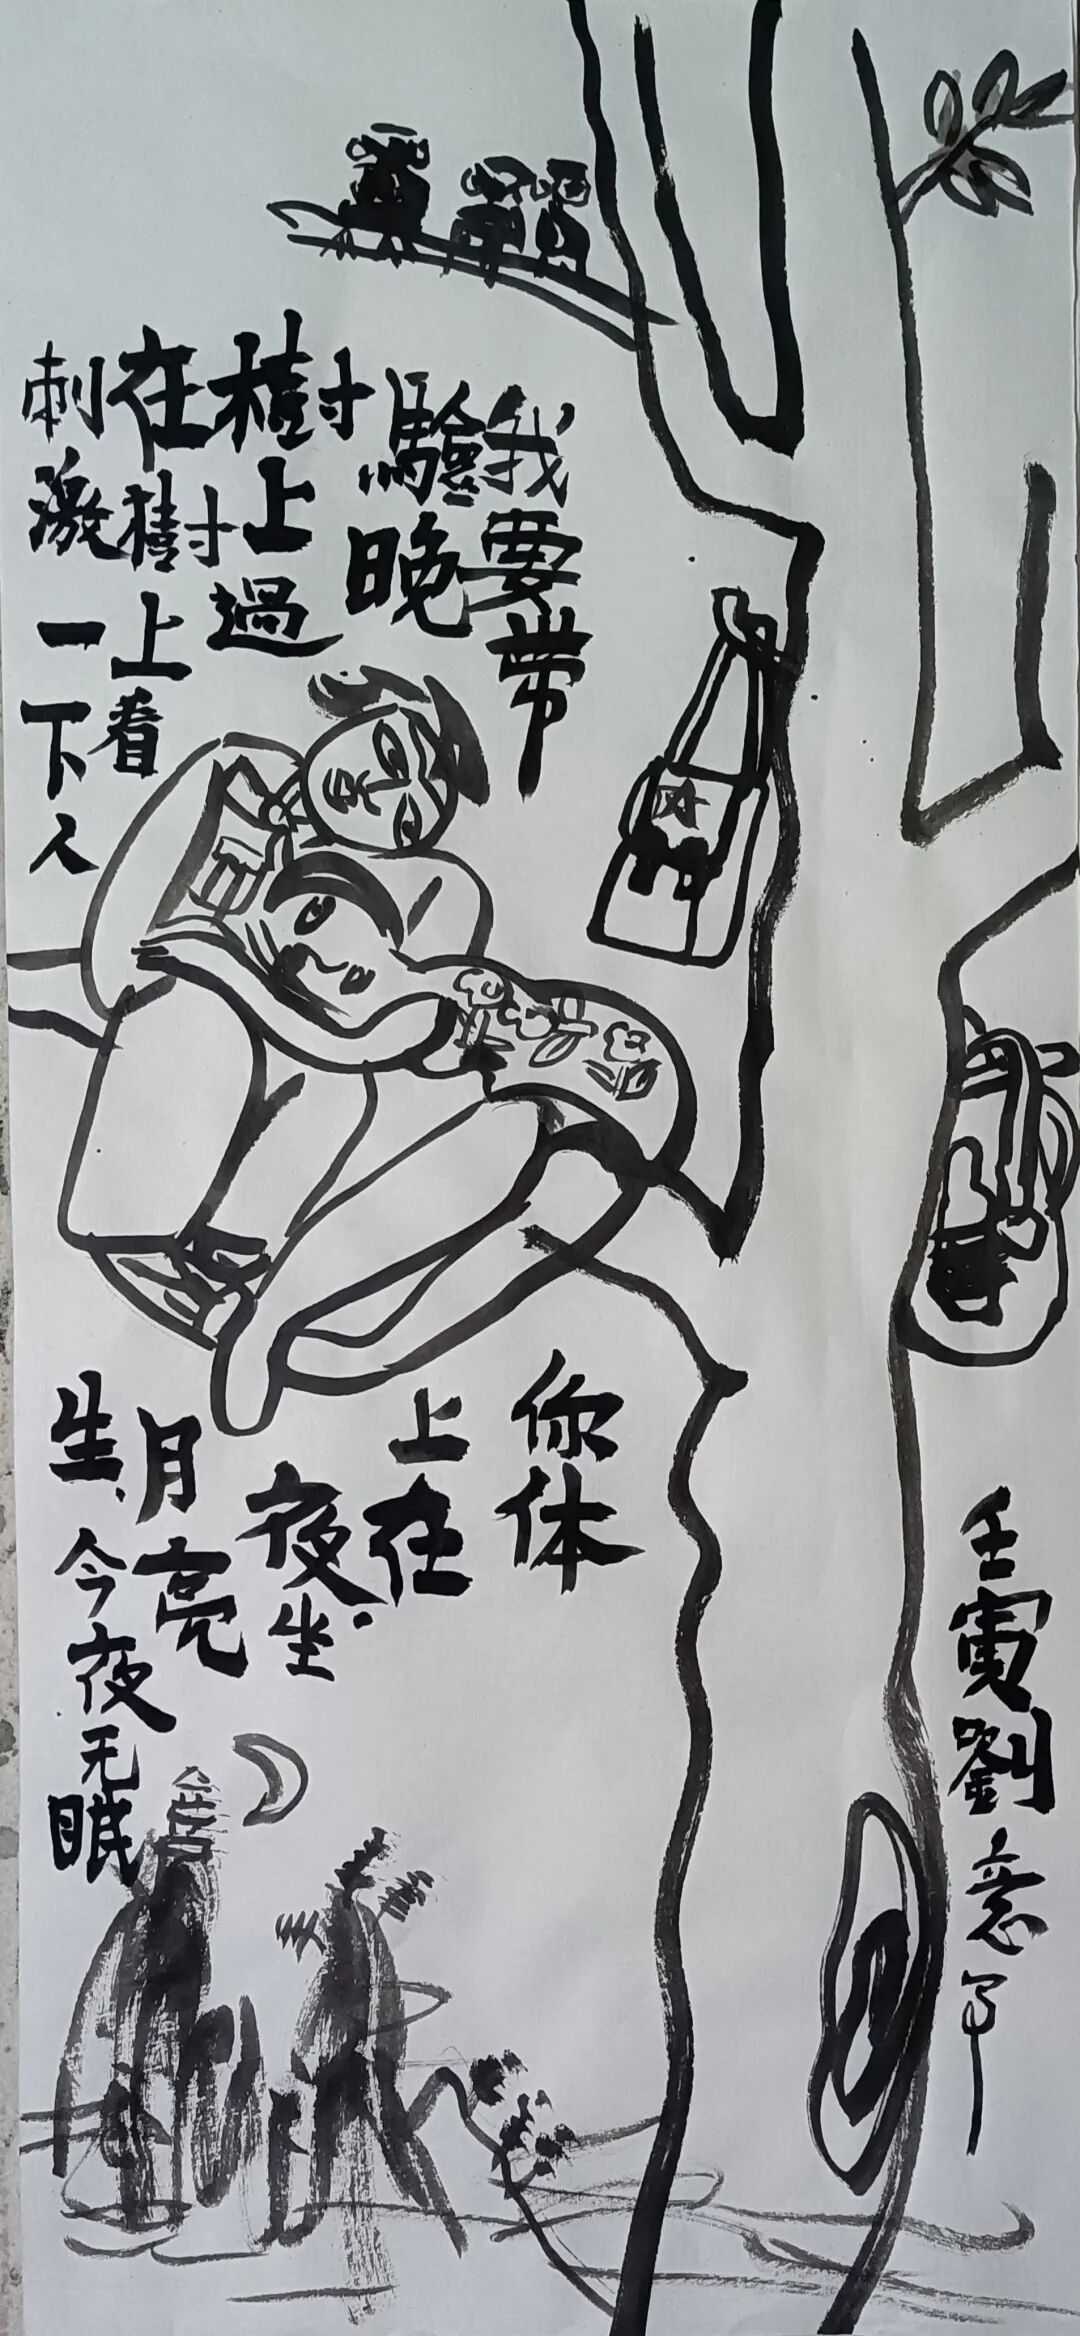 我要带
你体
驗晚
上在
樹上過
夜坐
在樹上看
月亮
刺激一下人
生、今夜无眠
壬寅劉意写